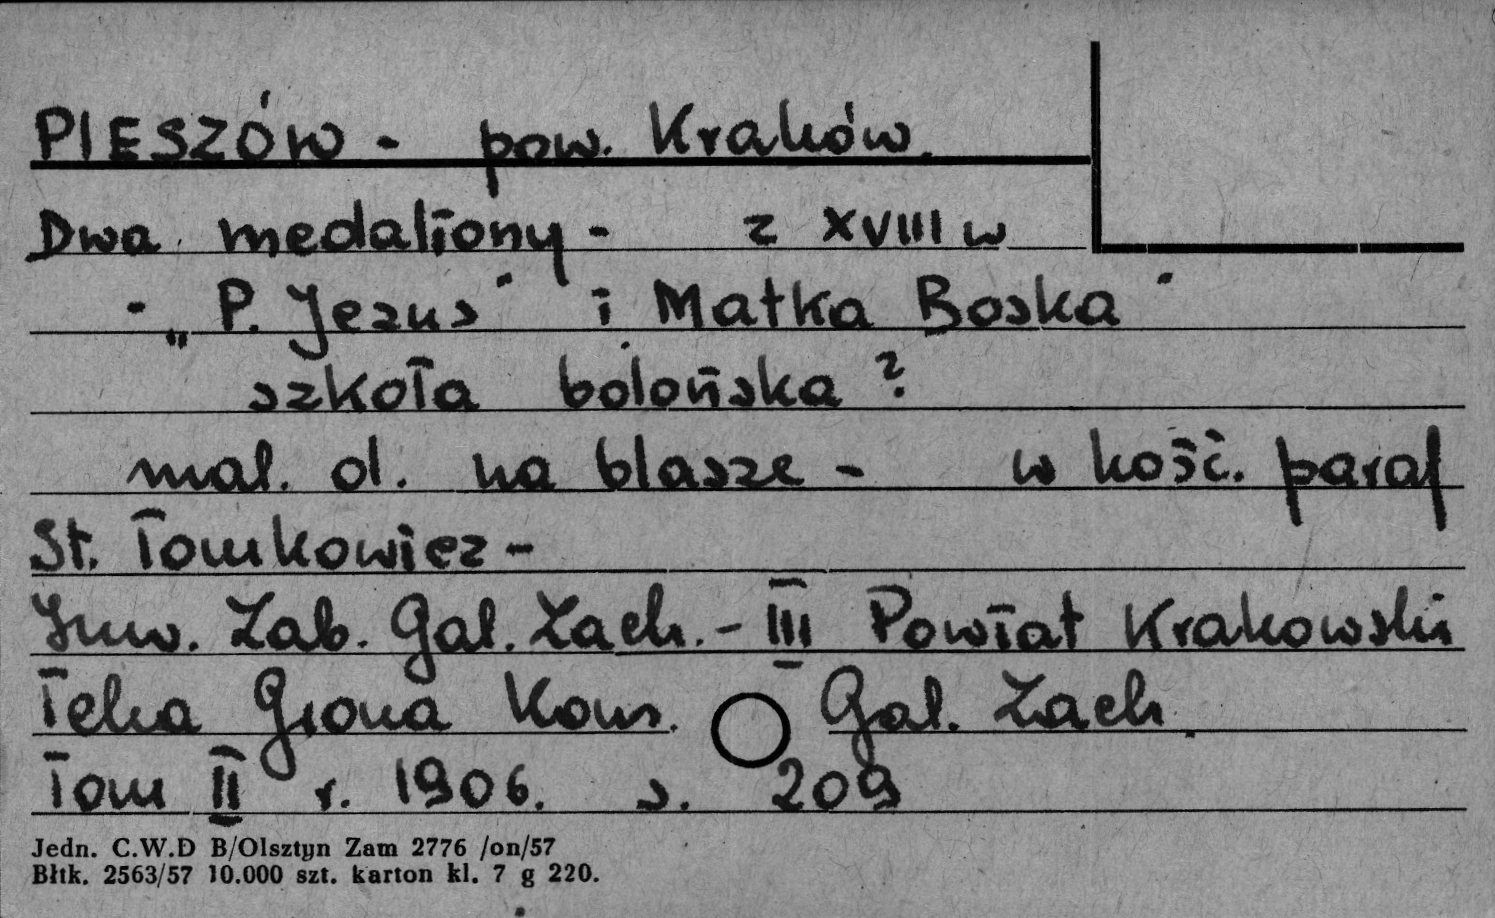 PIESZÓW - pow. Kraków.
Dwa medaliony - z XVIII w
- „P. Jezus" i Matka Boska"
szkoła bolońska?
mal. ol. na blasze - w kość. paraf
St. Tomkowicz -
Inw. Zab. Gal. Zach. - III Powiat Krakowski
Teka Grona Kons. Gal. Zach.
Tom II r. 1906. s. 209
Jedn. C.W.D B/Olsztyn Zam 2776 /on/57
Błtk. 2563/57 10.000 szt. karton kl. 7 g 220.